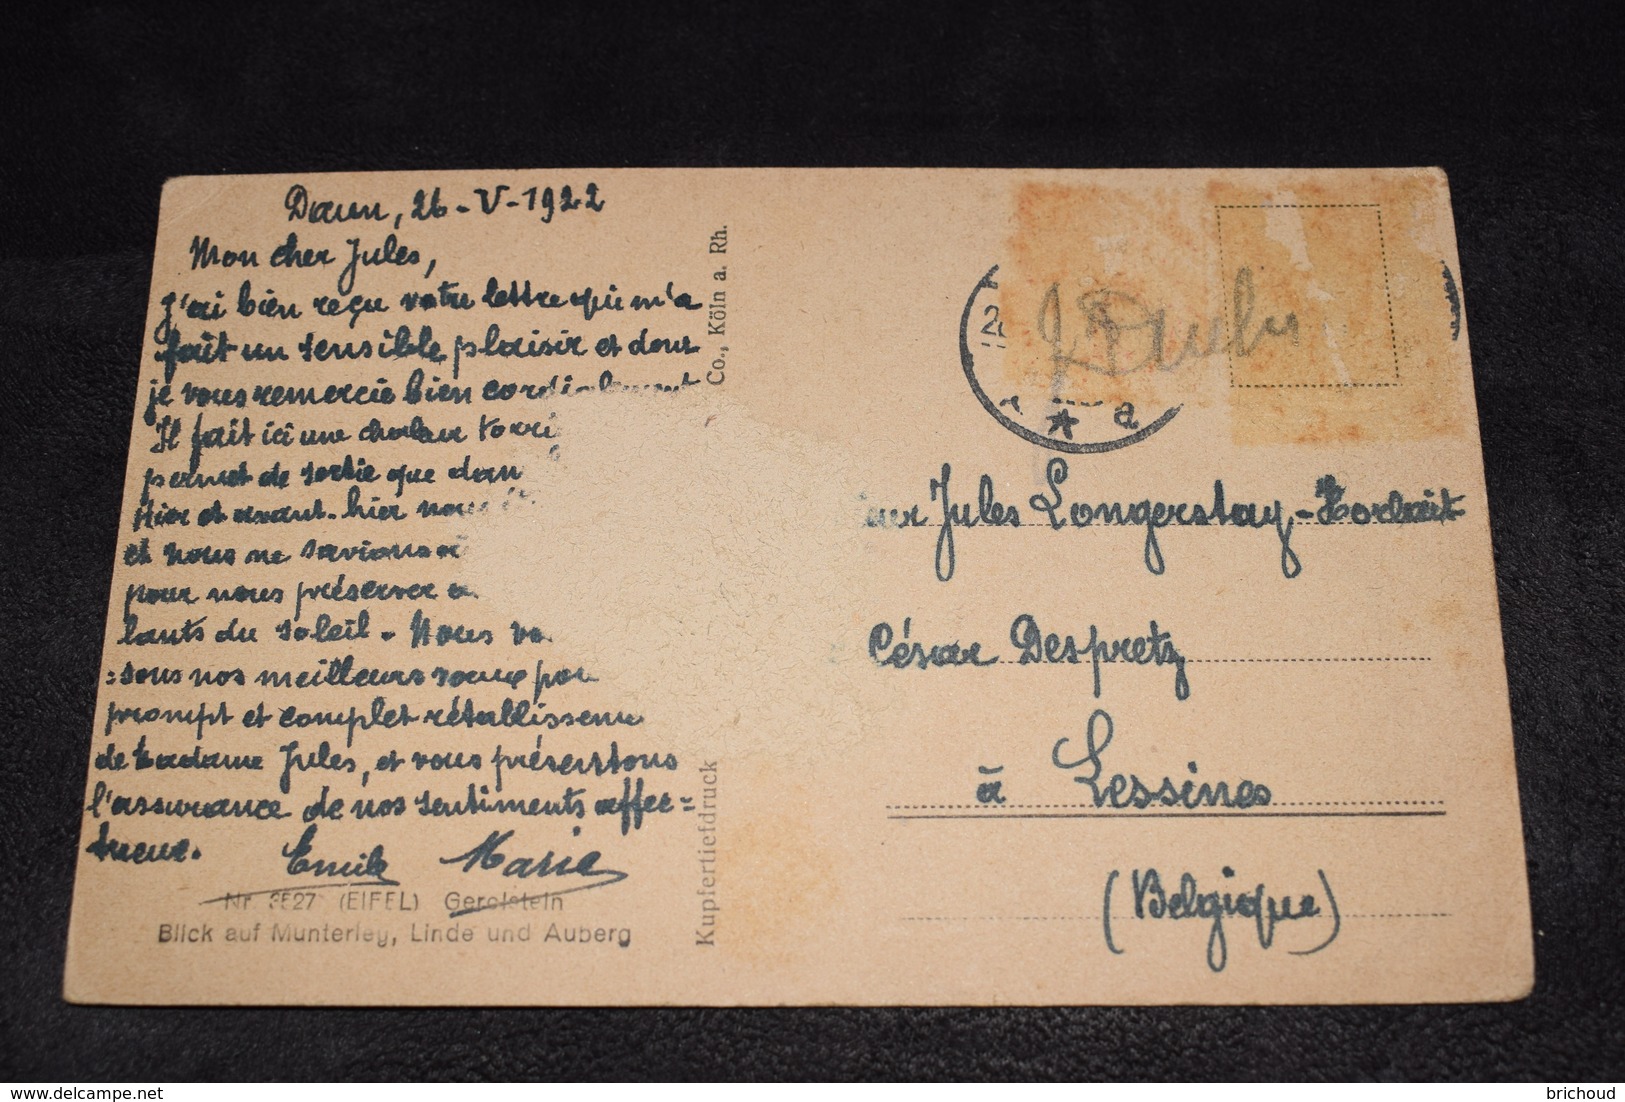 Daun, 26-V-1922
Mon cher Jules,
J'ai bien reçu votre lettre qui m'a
fait un sensible plaisir et dont
je vous remercie bien cordialement
Il fait ici une chaleur torri
permet de sortie que dan
Hier et avant-hier nous
et nous ne savions
pour nous préserver
lants du soleil. Nous vo
=sons nos meilleurs voeux pou
prompt et complet rétablisseme
de Madame Jules, et vous présentons
l'assurance de nos sentiments affec=
tueux.
Emile Marie
Nr. 3527 (EIFEL) Gerolstein
Blick auf Munterley, Linde und Auberg
Kupfertiefdruck
Co., Köln a. Rh.
a
Jules Longerstay-Horlait
César Despretz
à Lessines
(Belgique)
delcampe.net
brichoud